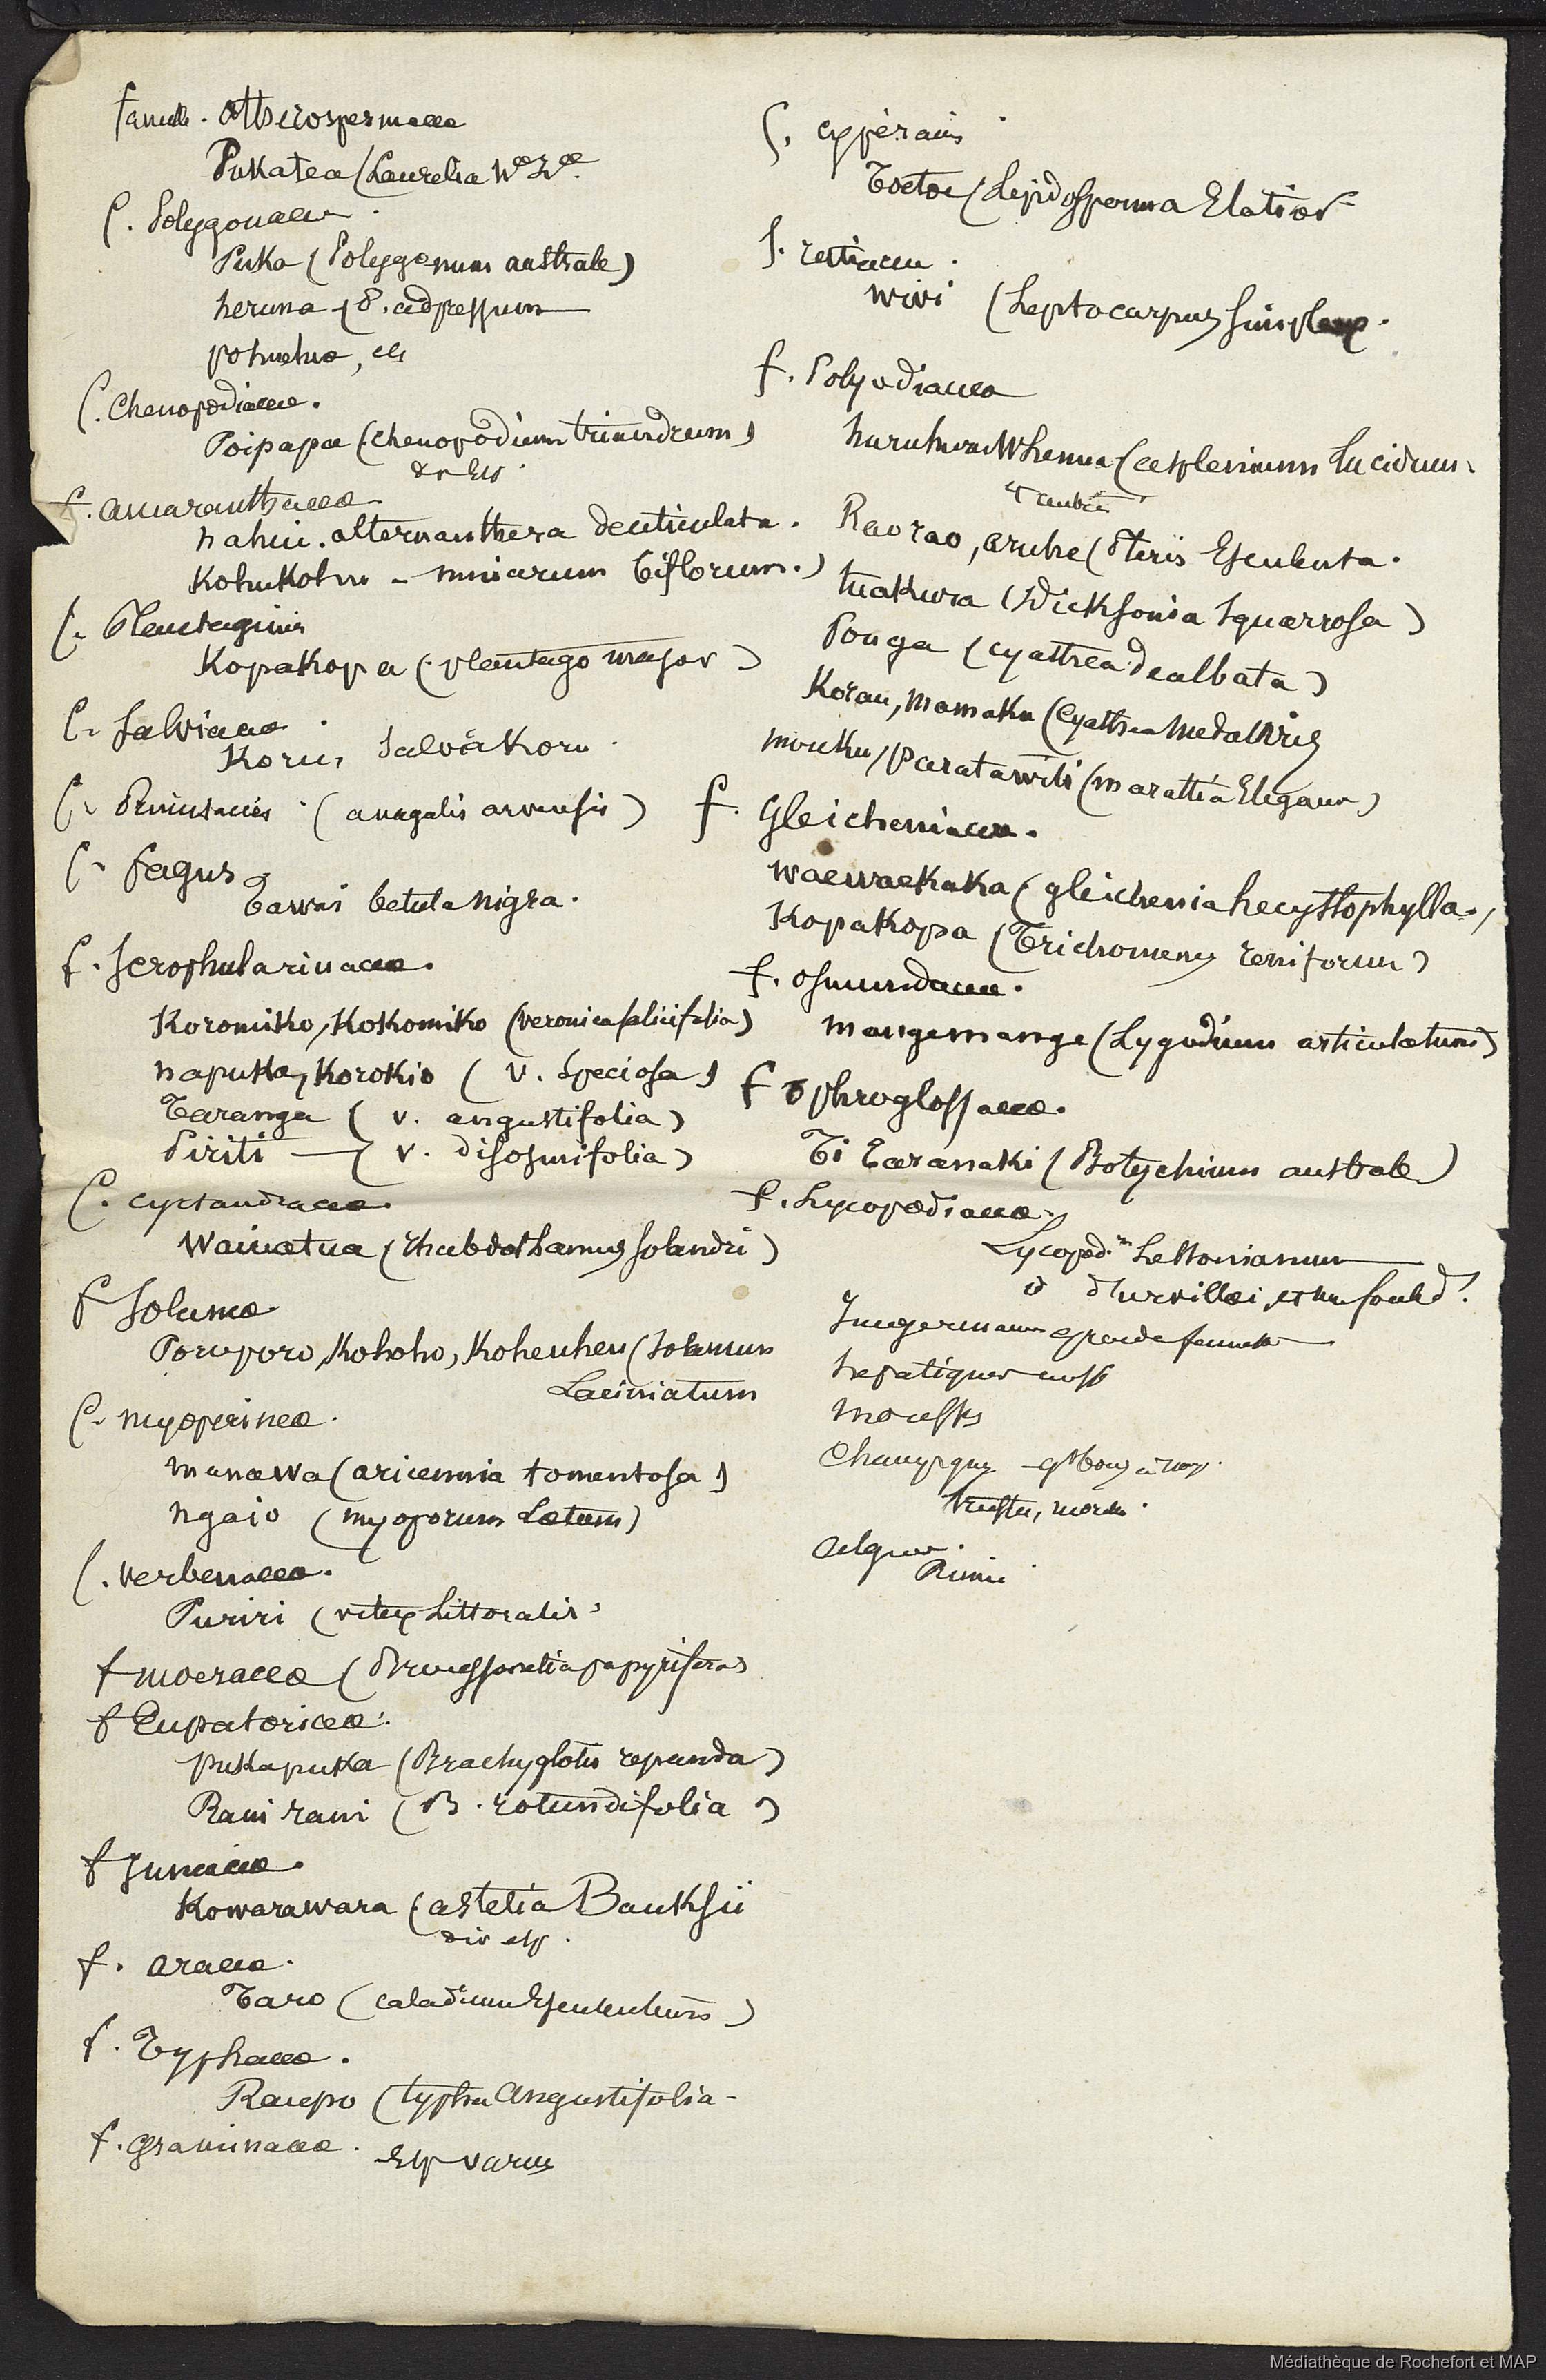 famille. Atherospermacea
Pukatea (Laurelia Nae Zae.
f. Polygonacea.
Puka (Polygonum australe)
heruna (P. adpressum
pohuehue, es
f. Chenopodiacea.
Poipapa (chenopodium triandrum)
dr Esp.
f. amaranthacea
nahui. alternanthera denticulata.
KohuKohu - mniarum biflorum.)
f. Plantaginis
KopaKopa (plantago major)
f. Salviacea
Koru, Salvakoru.
f. (anagalis arvensis)
f. fagus
Tawai betula nigra.
f. Scrophularinacea.
Koromiko, Kokomiko (veronica salicifolia)
napuka, Korokio (V. speciosa)
Taranga (v. angustifolia)
Piriti — (v. disosmifolia)
f. cyrtandracea.
Waiuatua (rhabdothamus solandri)
f Solanea.
Poroporo, Kohoho, Kohenhen (Solanum
Laciniatum
f. myoperinea.
manawa (avicennia tomentosa)
ngaio (myoporum Lætum)
f. verbenacea.
Puriri (vitex Littoralis
f moeracea (Broussonetia papyrifera)
f Eupatoricea.
pukapuka (Brachyglotis repanda)
Rani rani (B. rotundifolia)
f Juncacea.
Kowarawara (astelia Banksii
div esp.
f. aracea.
Taro (caladium Esculentum)
f. Typhacea.
Raupo (typha Angustifolia -
f. graminacea. Esp varies
f. cypéracis
Toetoe (Lepidosperma Elatior
f. restiacea.
wiwi (Leptocarpus simplex.
f. Polyodiacea
huruhuruWhenua (asplenium Lucidum.
Raorao, aruhe (Pteris Esculenta.
tuakura (Dicksonia squarrosa)
Ponga (cyathea dealbata)
Korau, mamaku (Cyathea Medallris
mouku, paratawiti (marattia Elegans)
f. Gleicheniacea.
waewaekaka (gleichenia hecystophylla.,
KopaKopa (Trichomenes reniforum)
f. osmundacea.
mangemange (Lygodium articulatum)
f ophroglossacea.
Ti Taranaki (Botychium australe)
f. Lycopodiacea.
Lycopod.m Lessonianum
id d'urvillæi,
Jungermann grande famille
hepatiques
mousses
Champign
truffes, morill.
algues.
Rimu